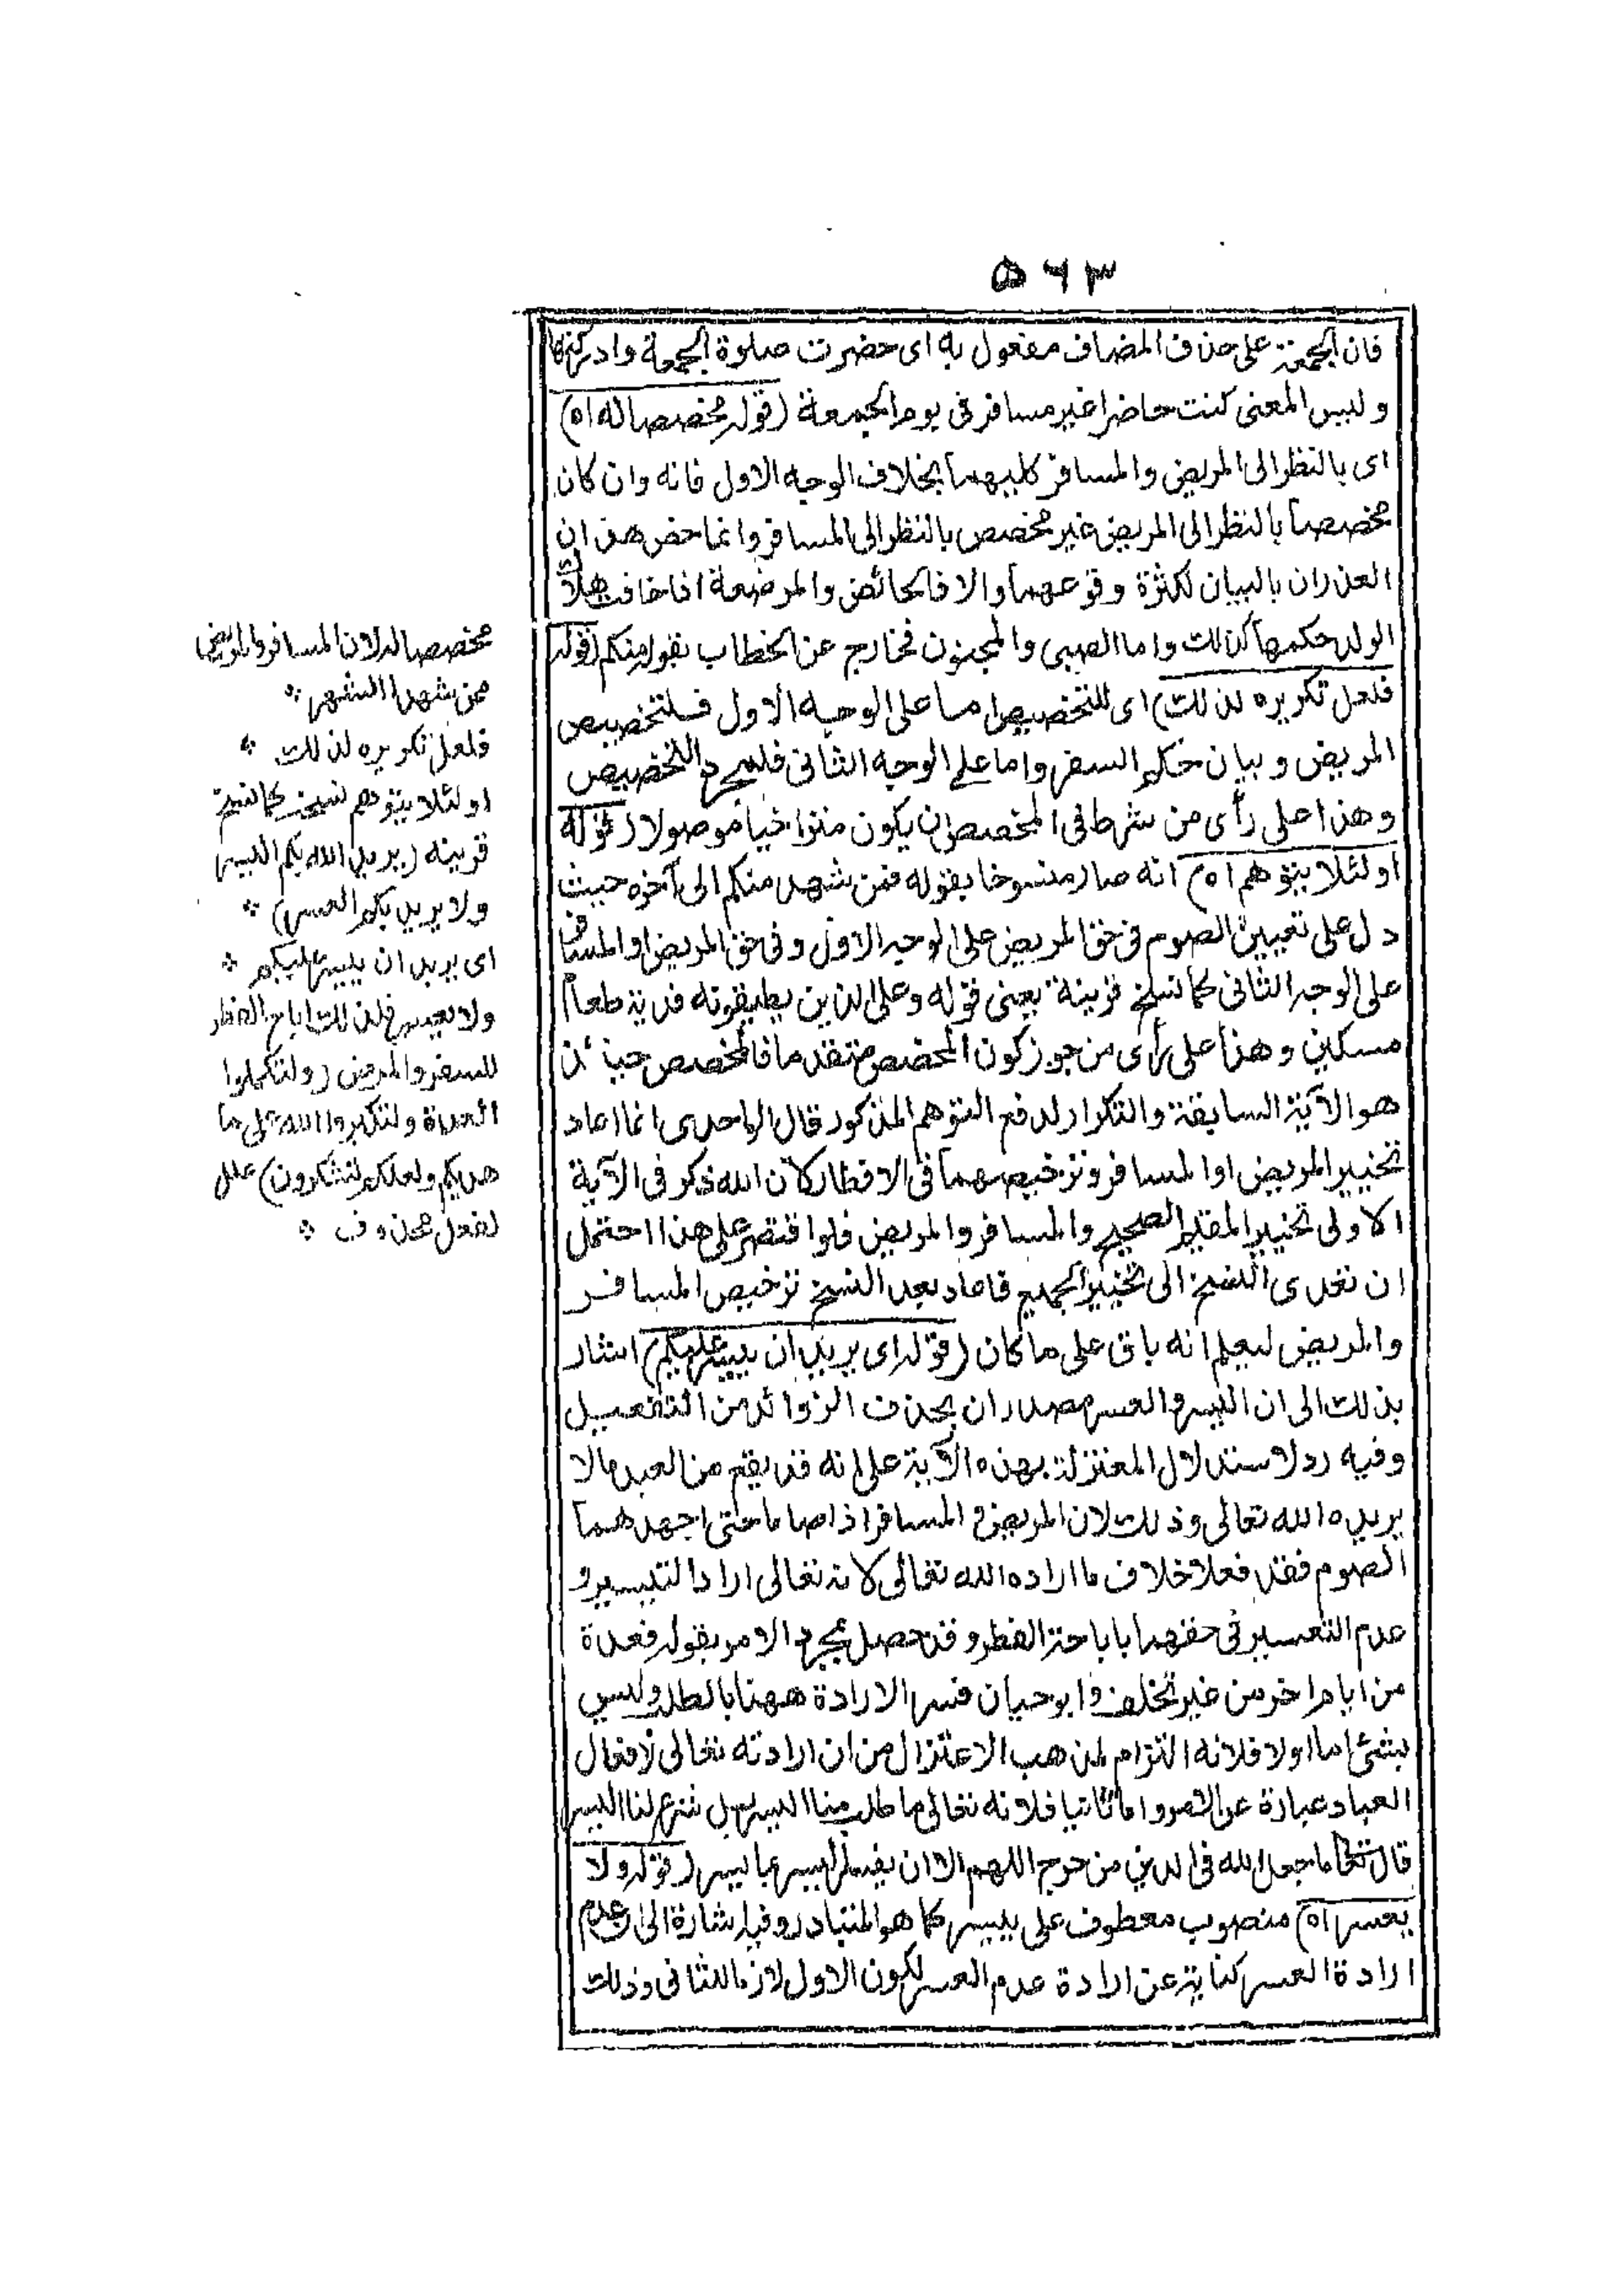 ٥٦٣
فان الجمعة على حذف المضاف مفعول به اى حضرت صلوة الجمعة وادركتها
وليس المعنى كنت حاضرا غير مسافر فى يوم الجمعة (قوله مخصصا له اه)
اى بالنظر الى المريض والمسافر كليهما بخلاف الوجه الاول فانه وان كان
مخصصا بالنظر الى المريض غير مخصص بالنظر الى المسافر وانما خص هذان
العذران بالبيان لكثرة وقوعهما والا فالحائض والمرضعة اذا خافت هلاك
الولد حكمها كذلك واما الصبى والمجنون فخارج عن الخطاب بقوله منكم (قوله
فلعل تكريره لذلك) اى للتخصيص اما على الوجه الاول فلتخصيص
المريض وبيان حكم السفر واما على الوجه الثانى فلمجرد التخصيص
وهذا على رأى من شرط فى المخصص ان يكون متراخيا موصولا (قوله
او لئلا يتوهم اه) انه صار منسوخا بقوله فمن شهد منكم الى آخره حيث
دل على تعيين الصوم فى حق المريض على الوجه الاول وفى حق المريض او المسافر
على الوجه الثانى كما نسخ قرينة يعنى قوله وعلى الذين يطيقونه فدية طعام
مسكين وهذا على رأى من جوز كون المخصص متقدما فالمخصص حينئذ
هو الآية السابقة والتكرار لدفع التوهم المذكور قال الواحدى انما اعاد
تخيير المريض او المسافر وترخيصهما فى الافطار كان الله ذكر فى الآية
الاولى تخيير المقيم الصحيح والمسافر والمريض فلو اقتصر على هذا احتمل
ان تعدى النسخ الى تخيير الجميع فاعاد بعد النسخ ترخيص المسافر
والمريض ليعلم انه باق على ما كان (قوله اى يريد ان ييسر عليكم) اشار
بذلك الى ان اليسر والعسر مصدران بحذف الزوائد من التفعيل
وفيه رد لاستدلال المعتزلة بهذه الآية على انه قد يقع من العبد ما لا
يريده الله تعالى وذلك لان المريض والمسافر اذا صاما حتى اجهدهما
الصوم فقد فعلا خلاف ما اراده الله تعالى لانه تعالى اراد التيسير و
عدم التعسير فى حقهما باباحة الفطر وقد حصل بمجرد الامر بقوله فعدة
من ايام اخر من غير تخلف وابو حيان فسر الارادة ههنا بالطلب وليس
بشئ اما اولا فلانه التزام لمذهب الاعتزال من ان ارادته تعالى لافعال
العباد عبارة عن الامر واما ثانيا فلانه تعالى ما طلب منا اليسر بل شرع لنا اليسر
قال تعالى ما جعل الله فى الدين من حرج اللهم الا ان يفسر اليسر بما ييسر (قوله ولا
يعسر اه) منصوب معطوف على ييسر كما هو المتبادر وفيه اشارة الى ان عدم
ارادة العسر كناية عن ارادة عدم العسر لكون الاول لازما للثانى وذلك
مخصصا له لان المسافر والمريض
ممن شهد الشهر ٭
فلعل تكريره لذلك ٭
او لئلا يتوهم نسخه كما نسخ
قرينه (يريد الله بكم اليسر
ولا يريد بكم العسر) ٭
اى يريد ان ييسر عليكم ٭
ولا يعسر فلذلك اباح الفطر
للسفر والمرض (ولتكملوا
العدة ولتكبروا الله على ما
هديكم ولعلكم تشكرون) علل
لفعل محذوف ٭